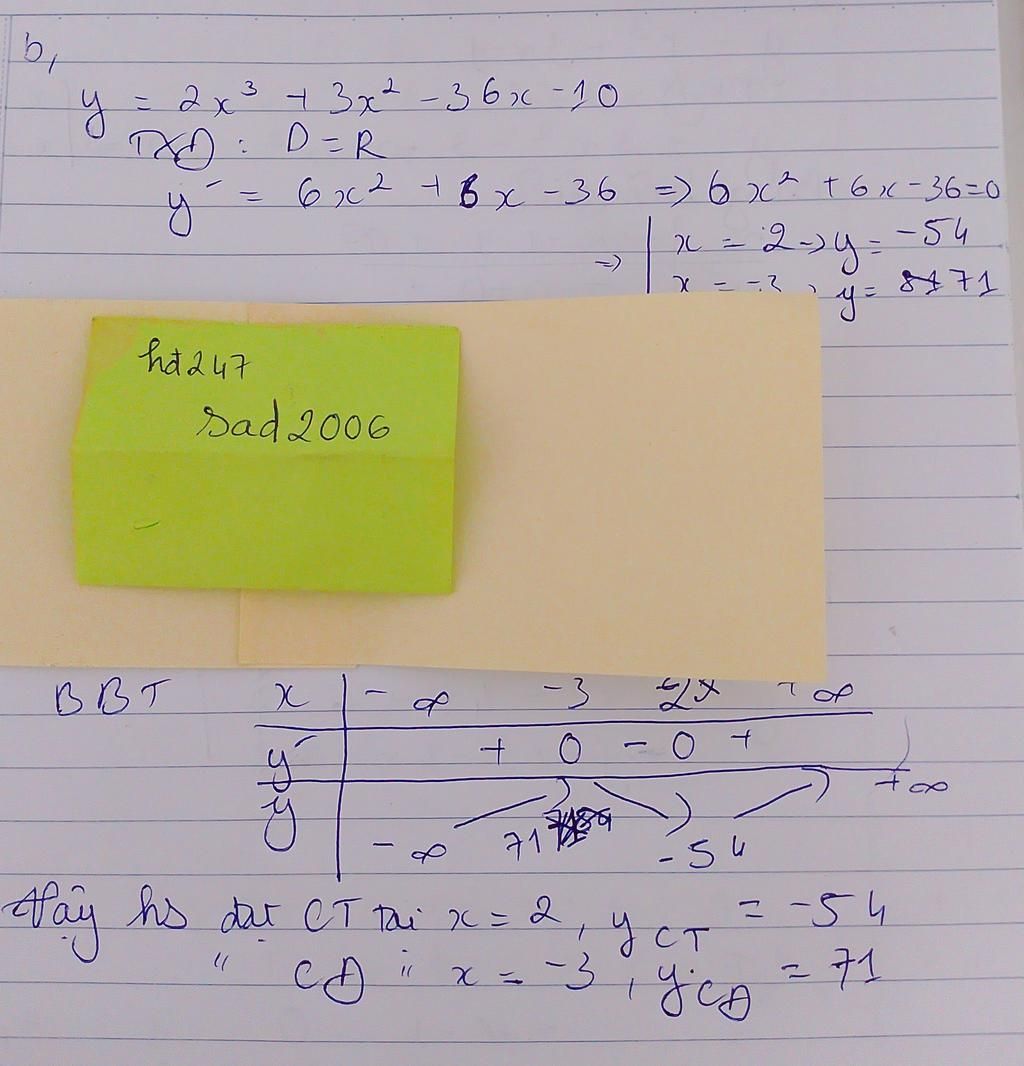 b,
y = 2x³ + 3x² - 36x - 10
TXĐ : D = R
y' = 6x² + 6x - 36 => 6x² + 6x - 36 = 0
=> | x = 2 -> y = -54
x = -3, y = 71
hđ247
sad2006
BBT x | -∞ -3 2 +∞
y' | + 0 - 0 +
+∞
y
-∞ 71 -54
Vậy hs đạt CT tại x = 2, y CT = -54
" CĐ " x = -3, y CĐ = 71